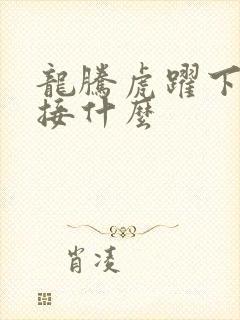 龍騰虎躍下
接什麼
肖凌